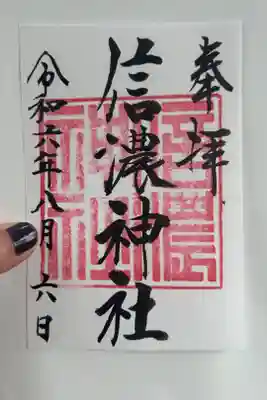 奉拝
信濃神社
令和六年八月六日